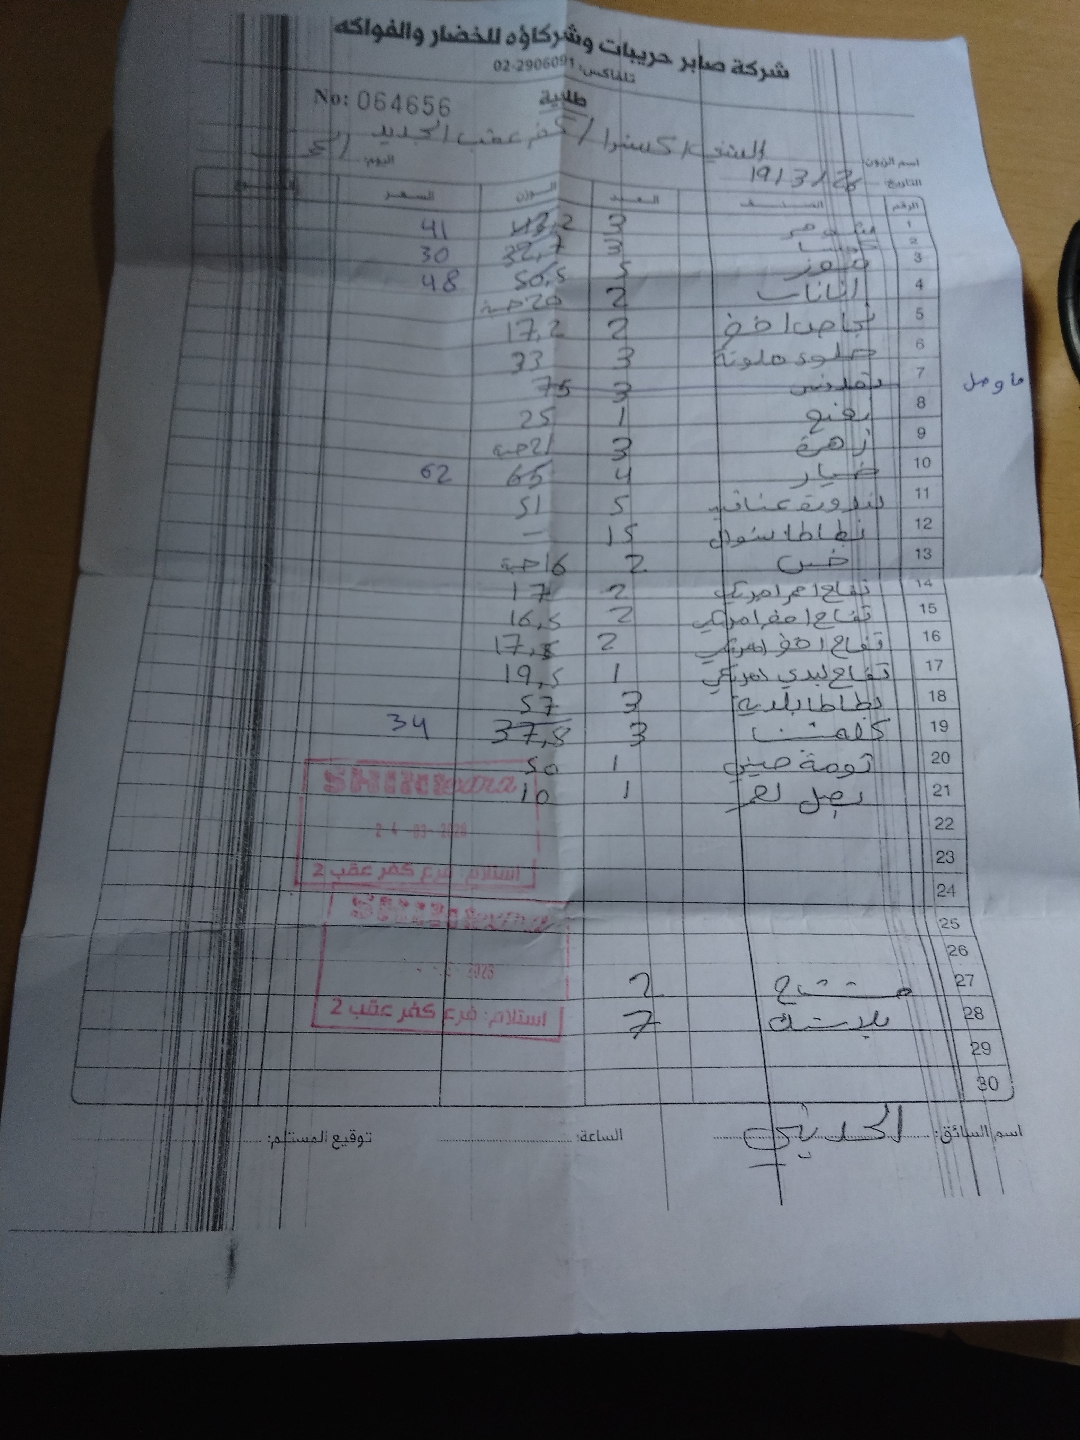 شركة صابر حريبات وشركاؤه للخضار والفواكه
تلفاكس: 02-2906091
طلبية
No: 064656
اسم الزبون / كفر عقب الجديد
اليوم:
التاريخ 19/3/26
الرقم الصنف العدد الوزن السعر
1 3 43,2 41
2 3 32,7 30
3 موز 5 50,5 48
4 اناناس 2 20 حبة
5 2 17,2
6 حلوه ملونة 3 33
7 بقدونس 3 75 ما وصل
8 نعنع 1 25
9 زهرة 3 21 حبة
10 خيار 4 65 62
11 بندورة عناقيد 5 51
12 بطاطا شوال 15 -
13 خس 2 16 حبة
14 تفاح احمر امريكي 2 17
15 تفاح اصفر امريكي 2 16,5
16 تفاح اخضر امريكي 2 17,5
17 تفاح ليدي امريكي 1 19,5
18 بطاطا بلدية 3 57
19 كلمنتينا 3 37,8 34
20 ثومة صيني 1 50
21 بصل احمر 1 10
22
23
24
25
26
27 مشتاح 2
28 بلاستيك 7
29
30
SHINI extra
استلام: فرع كفر عقب 2
SHINI extra
2026
استلام: فرع كفر عقب 2
اسم السائق:
الساعة:
توقيع المستلم: